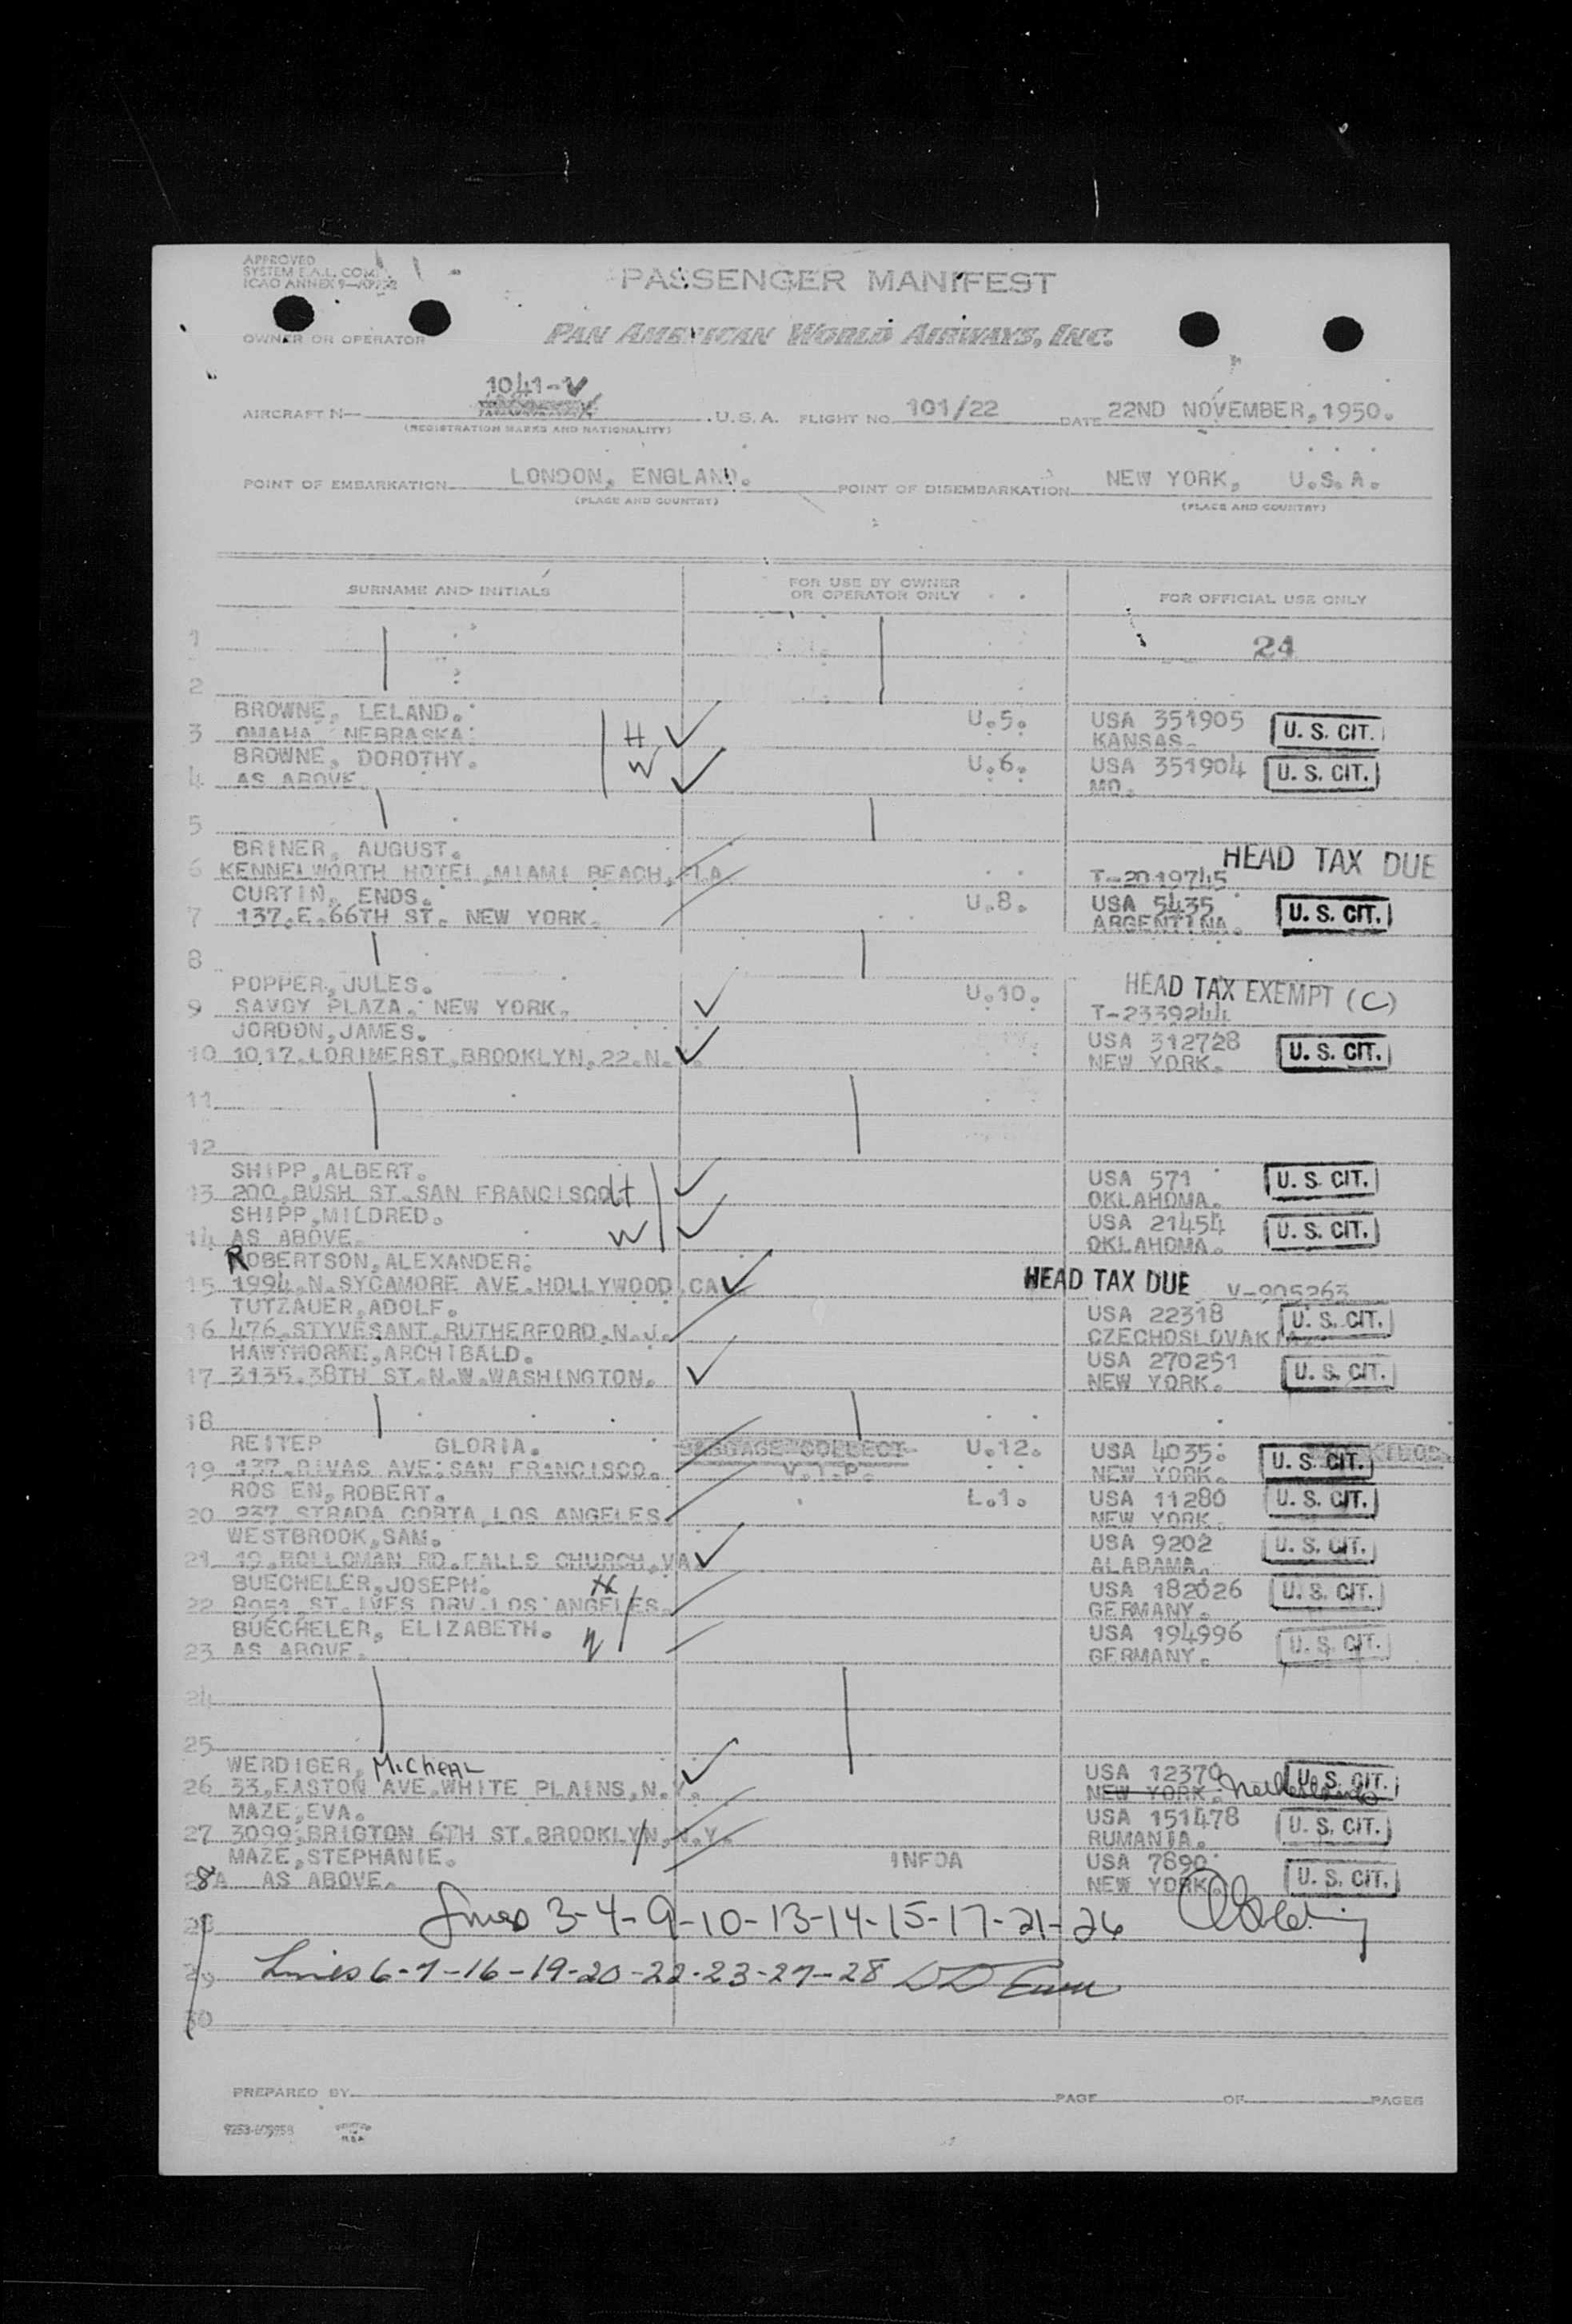 APPROVED
SYSTEM E.A.L. COM.
ICAO ANNEX 9
PASSENGER MANIFEST
OWNER OR OPERATOR PAN AMERICAN WORLD AIRWAYS, INC.
1041-V
AIRCRAFT N— U.S.A. FLIGHT NO. 101/22 DATE 22ND NOVEMBER, 1950.
(REGISTRATION MARKS AND NATIONALITY)
POINT OF EMBARKATION LONDON, ENGLAND. POINT OF DISEMBARKATION NEW YORK, U.S.A.
(PLACE AND COUNTRY) (PLACE AND COUNTRY)
SURNAME AND INITIALS FOR USE BY OWNER OR OPERATOR ONLY FOR OFFICIAL USE ONLY
1 24
2
BROWNE, LELAND. H U.5. USA 351905 U. S. CIT.
3 OMAHA NEBRASKA. KANSAS.
BROWNE, DOROTHY. W U.6. USA 351904 U. S. CIT.
4 AS ABOVE. MO.
5
BRINER, AUGUST. HEAD TAX DUE
6 KENNELWORTH HOTEL, MIAMI BEACH, T-2019745
CURTIN, ENDS. U.8. USA 5435 U. S. CIT.
7 137.E.66TH ST. NEW YORK. ARGENTINA.
8
POPPER, JULES. U.10. HEAD TAX EXEMPT (C)
9 SAVOY PLAZA. NEW YORK. T-2339244
JORDON, JAMES. USA 312728 U. S. CIT.
10 1017.LORIMERST.BROOKLYN.22.N. NEW YORK.
11
12
SHIPP, ALBERT. USA 571 U. S. CIT.
13 200.BUSH ST.SAN FRANCISCO H OKLAHOMA.
SHIPP, MILDRED. USA 21454 U. S. CIT.
14 AS ABOVE. W OKLAHOMA.
ROBERTSON, ALEXANDER.
15 1994.N.SYCAMORE AVE.HOLLYWOOD.CA HEAD TAX DUE V-905263
TUTZAUER, ADOLF. USA 22318 U. S. CIT.
16 476.STYVESANT.RUTHERFORD.N.J. CZECHOSLOVAKIA.
HAWTHORNE, ARCHIBALD. USA 270251 U. S. CIT.
17 3135.38TH ST.N.W.WASHINGTON. NEW YORK.
18
REITER GLORIA. BAGGAGE COLLECT U.12. USA 4035. U. S. CIT.
19 137.RIVAS AVE.SAN FRANCISCO. V.I.P. NEW YORK.
ROS EN, ROBERT. L.1. USA 11280 U. S. CIT.
20 237 STRADA CORTA LOS ANGELES. NEW YORK.
WESTBROOK, SAM. USA 9202 U. S. CIT.
21 19.HOLLOMAN RD.FALLS CHURCH.VA. ALABAMA.
BUECHELER, JOSEPH. H USA 182026 U. S. CIT.
22 8051 ST.IVES DRV.LOS ANGELES. GERMANY.
BUECHELER, ELIZABETH. W USA 194996 U. S. CIT.
23 AS ABOVE. GERMANY.
24
25
WERDIGER, Micheal USA 12370 U. S. CIT.
26 33,EASTON AVE.WHITE PLAINS,N.Y. NEW YORK. Netherlands
MAZE, EVA. USA 151478 U. S. CIT.
27 3099,BRIGTON 6TH ST.BROOKLYN,N.Y. RUMANIA.
MAZE, STEPHANIE. INFDA USA 7890 U. S. CIT.
28A AS ABOVE. NEW YORK.
28 Lines 3-4-9-10-13-14-15-17-21-26
29 Lines 6-7-16-19-20-22-23-27-28
30
PREPARED BY PAGE OF PAGES
PRINTED IN U.S.A.